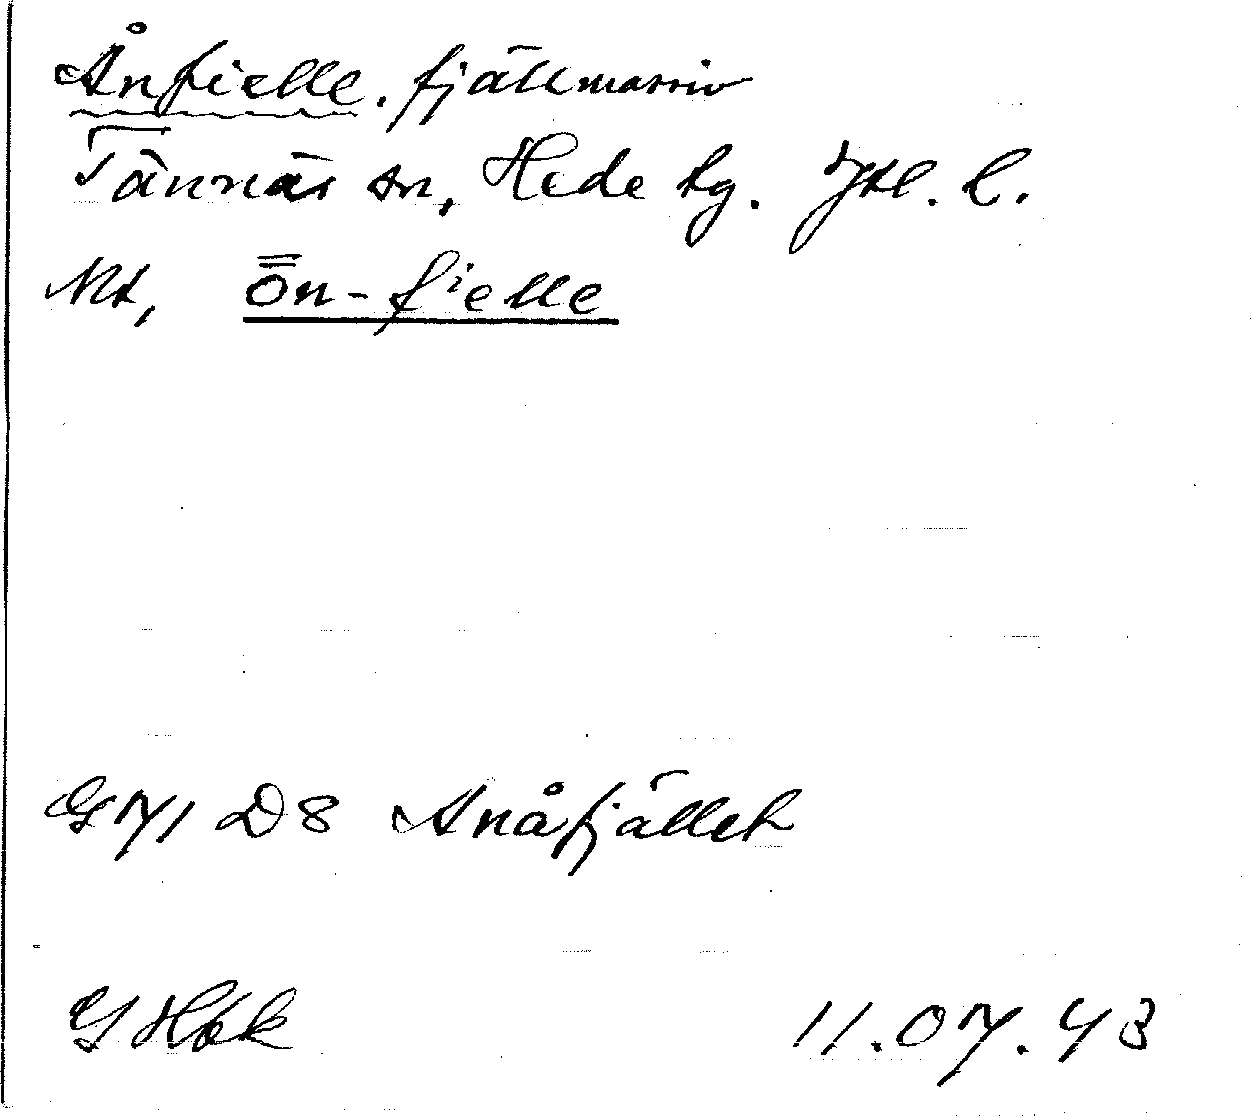 Ånfielle. fjällmassiv
Tännäs sn, Hede tg. Jtl. l.
Nt, Ön-fielle
G 71 D8 Anåfjället
G Hök 11.07.43